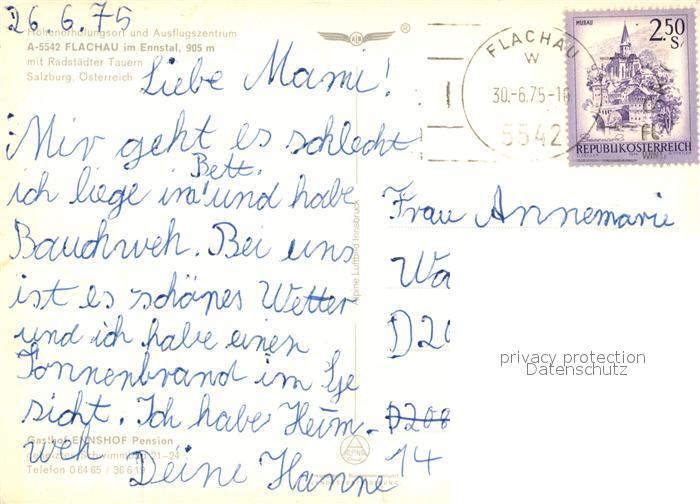 26.6.75
Höhenerholungsort und Ausflugszentrum
A-5542 FLACHAU im Ennstal, 905 m
mit Radstädter Tauern
Salzburg, Österreich
Liebe Mami!
Mir geht es schlecht
Bett.
ich liege im und habe
Bauchweh. Bei uns
ist es schönes Wetter
und ich habe einen
Sonnenbrand im Ge
sicht. Ich habe Heim-
weh Deine Hanne
Gasthof ENNSHOF Pension
21-24
Telefon 0 64 65 / 36 6 19
Alpine Luftbild Innsbruck
ALPINE
FLACHAU
W
30.-6.75-18
5542
MURAU
2.50
S
REPUBLIK ÖSTERREICH
Frau Annemarie
Wa
D20
D208
14
privacy protection
Datenschutz